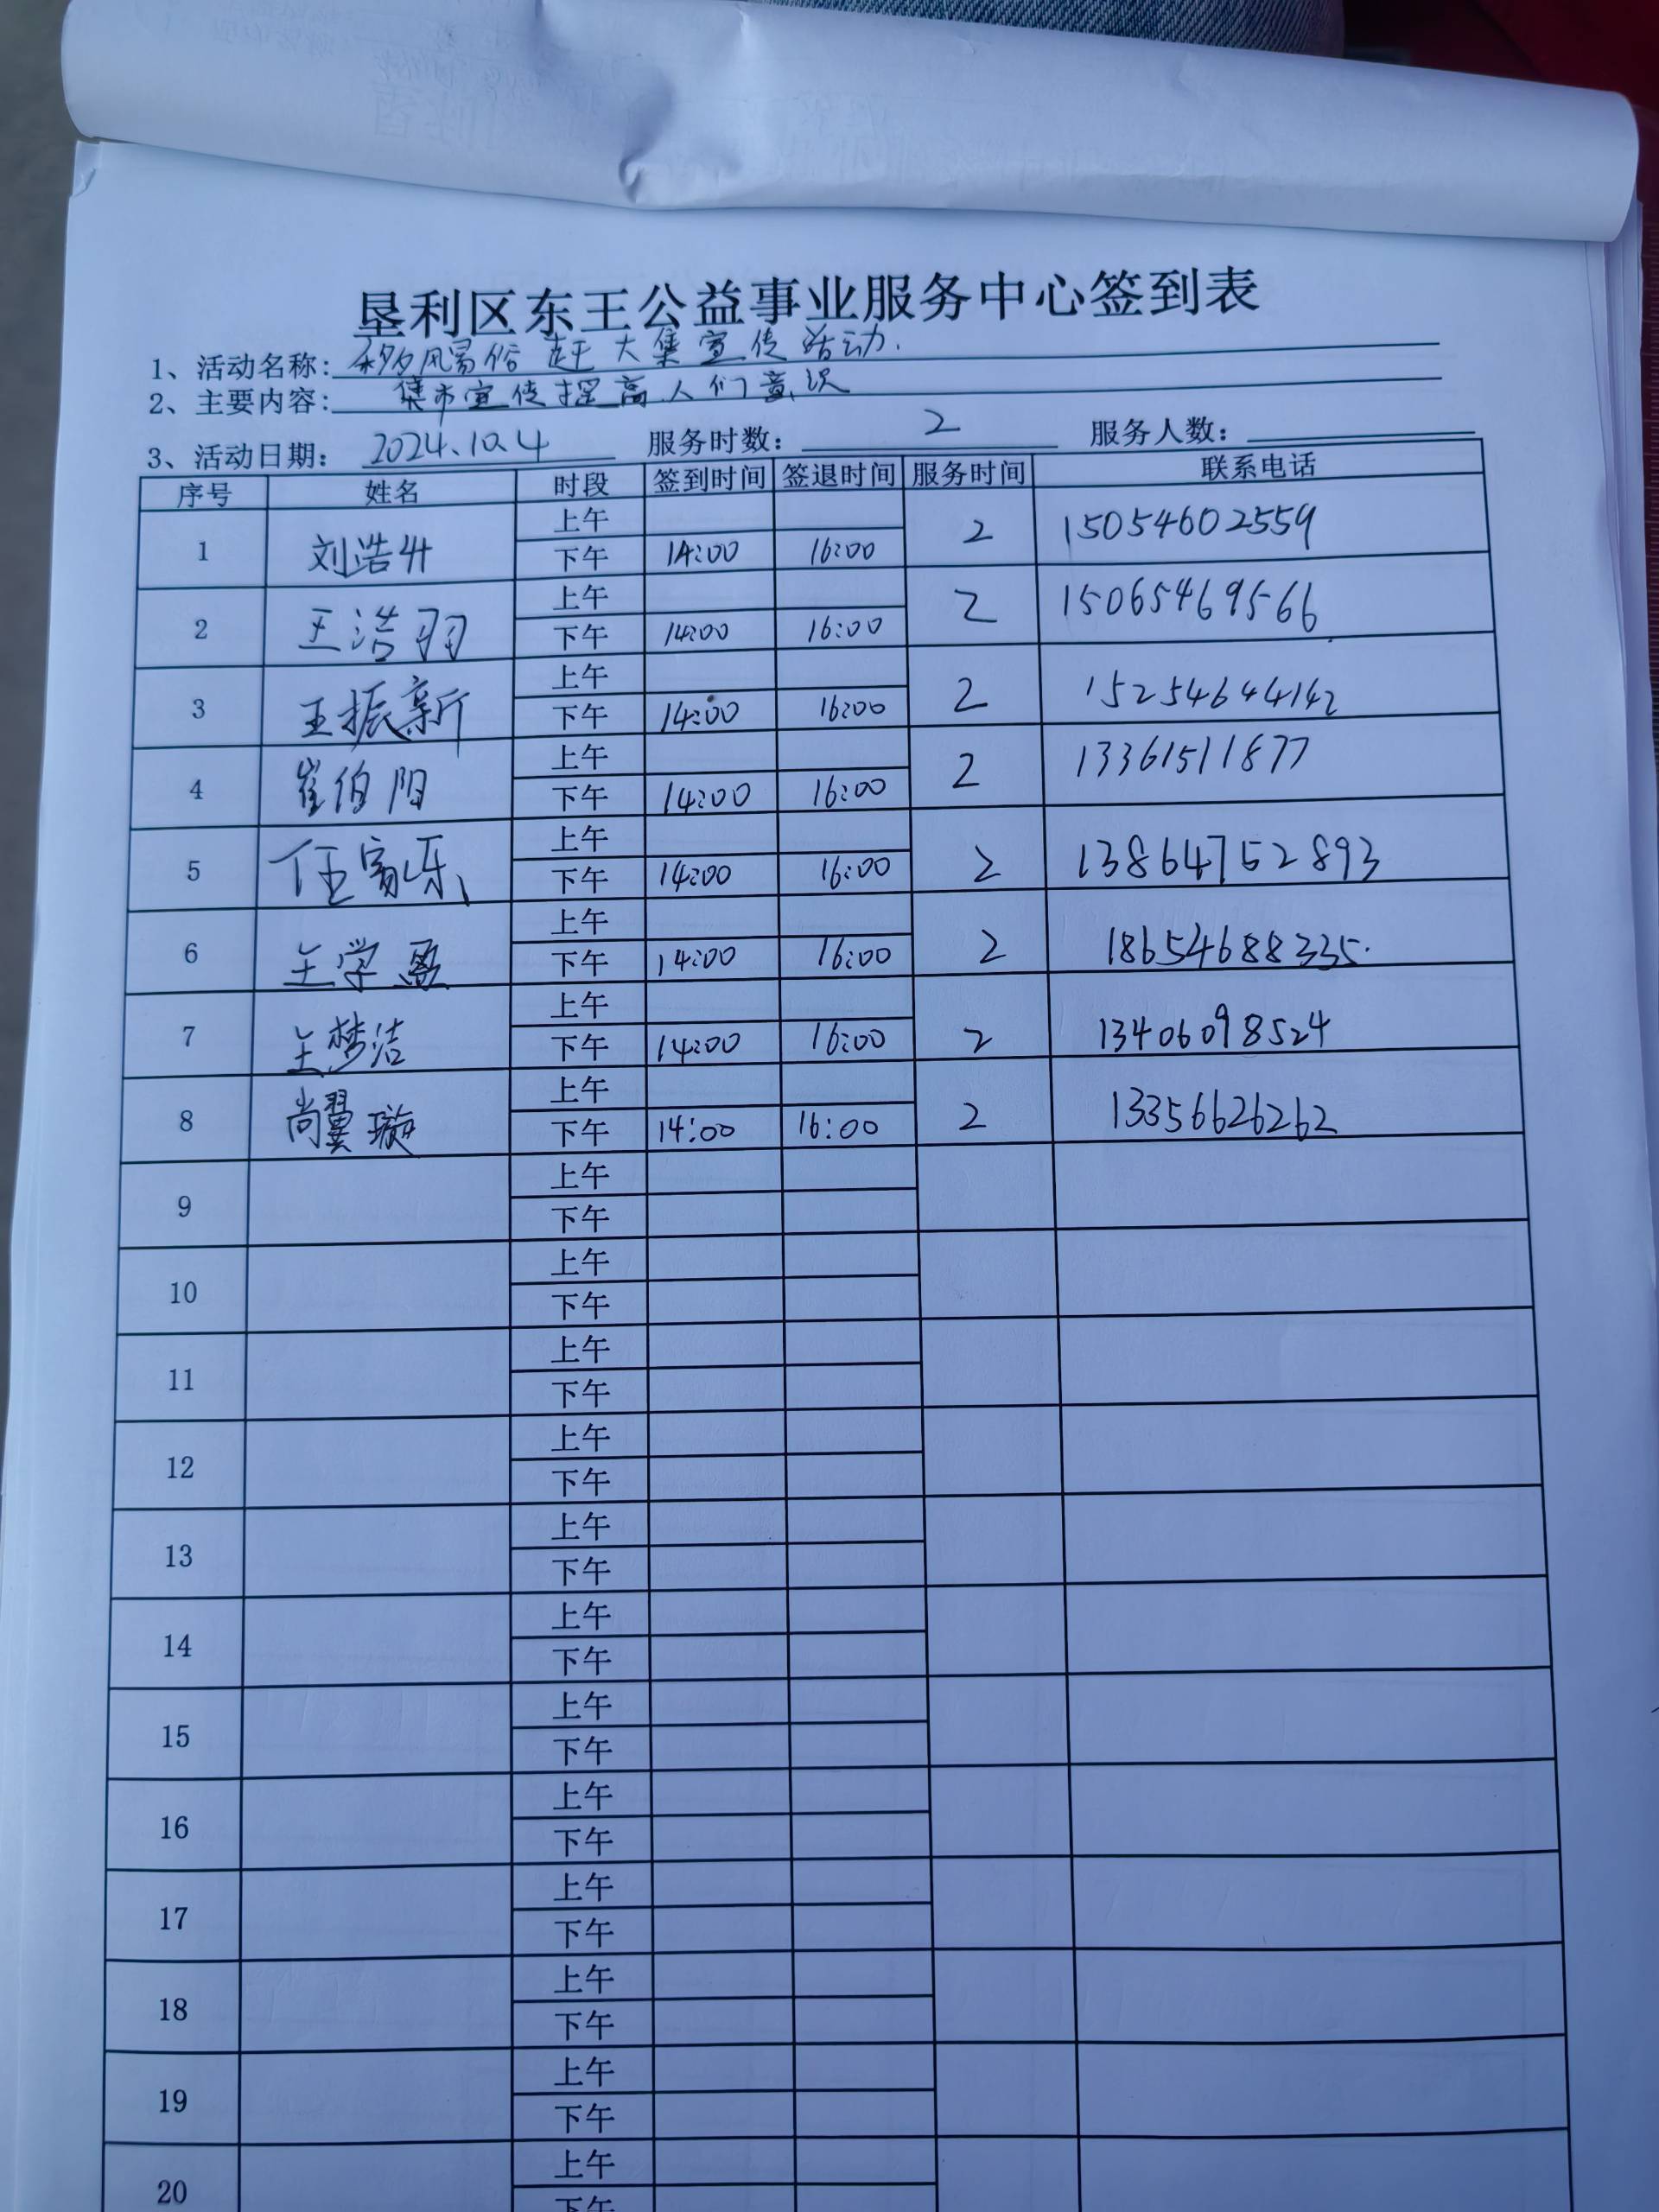 垦利区东王公益事业服务中心签到表
1、活动名称: 移风易俗 赶大集宣传活动.
2、主要内容: 集市宣传提高人们意识
3、活动日期: 2024.10.4 服务时数: 2 服务人数:
序号 姓名 时段 签到时间 签退时间 服务时间 联系电话
1 刘浩升 上午 2 15054602559
下午 14:00 16:00
2 王浩羽 上午 2 15065469566
下午 14:00 16:00
3 王振新 上午 2 15254644142
下午 14:00 16:00
4 崔伯阳 上午 2 13361511877
下午 14:00 16:00
5 任家乐 上午 2 13864752893
下午 14:00 16:00
6 王学盈 上午 2 18654688335.
下午 14:00 16:00
7 王梦洁 上午 2 13406098524
下午 14:00 16:00
8 尚翼璇 上午 2 13356626262
下午 14:00 16:00
9 上午
下午
10 上午
下午
11 上午
下午
12 上午
下午
13 上午
下午
14 上午
下午
15 上午
下午
16 上午
下午
17 上午
下午
18 上午
下午
19 上午
下午
20 上午
下午